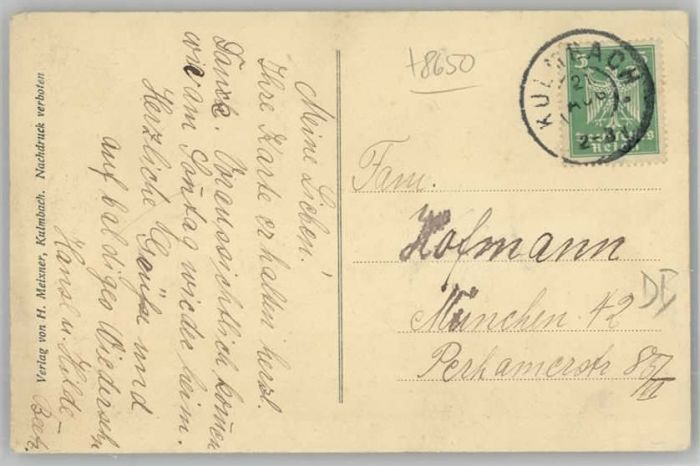 Meine Lieben!
Ihre Karte erhalten herzl.
Dank. Voraussichtlich komen
wir am Sonntag wieder heim.
Herzliche Grüße und
auf baldiges Wiedersehn
Hansl u. Hilde
Verlag von H. Meixner, Kulmbach. Nachdruck verboten
+8650
KULMBACH
21
AUG
5
Deutsches
Reich
Fam.
Hofmann
München 42
Perhamerstr 85/II